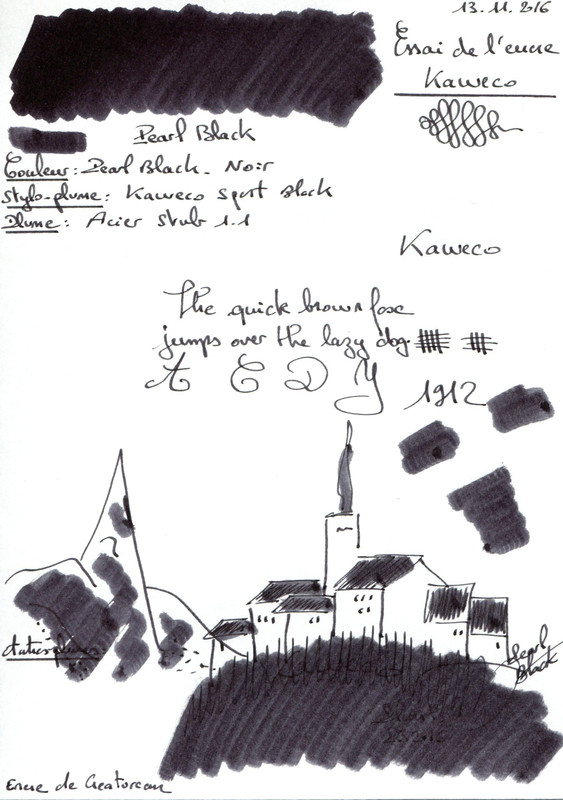 13.11.2016
Essai de l'encre
Kaweco
Pearl Black
Couleur: Pearl Black - Noir
Stylo-plume: Kaweco Sport Black
Plume: Acier stub 1.1
Kaweco
The quick brown fox
jumps over the lazy dog
A C D Y
1912
Autres plumes:
Pearl
Black
Encre de Creatorcan